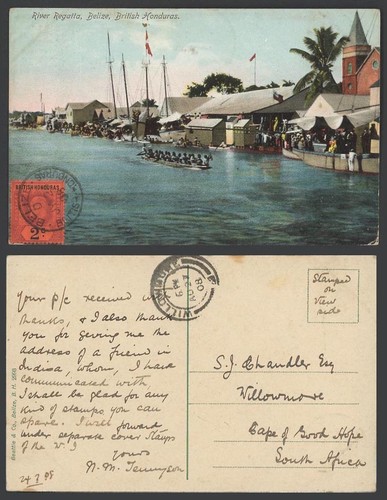 River Regatta, Belize, British Honduras.
BRITISH HONDURAS
BELIZE
2c
WILLOWMORE
AU 27
08
Stamped
on
View
side
Your p/c received with
thanks, & I also thank
you for giving me the
address of a friend in
Indisa, whom, I have
communicated with,
I shall be glad for any
kind of stamps you can
spare. I will forward
under separate cover Stamps
of the
Yours
N. M. Tennyson
24 7 08
S. J. Chandler Esq
Willowmore
Cape of Good Hope
South Africa